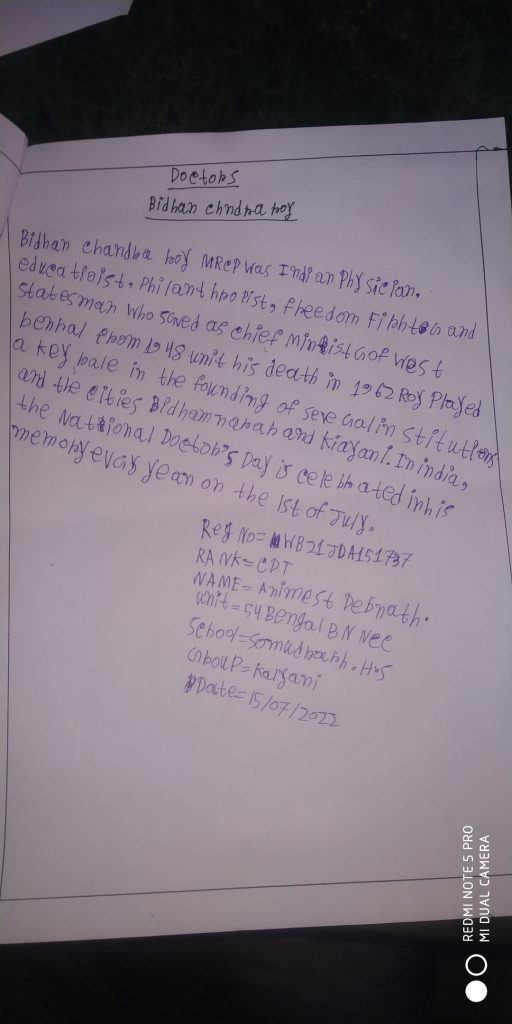 Doctors
Bidhan chndra roy
Bidhan chandra roy MRCP was Indian Physician,
educatioist, Philanthropist, freedom Fighter and
statesman who saved as chief Minister of West
benhal from 1948 unit his death in 1962 Roy Played
a key pale in the founding of several in stitutions
and the cities Bidhamnabah and Kiayani. In india,
the National Doctor's Day is celebrated in his
memory evcry year on the 1st of July.
Reg No= WB21JDA151737
RANK= CDT
NAME= Animest Debnath.
unit= 54 Bengal BN Ncc
School= Somudbarh. H.S
Group= Kalyani
Date= 15/07/2022
REDMI NOTE 5 PRO
MI DUAL CAMERA